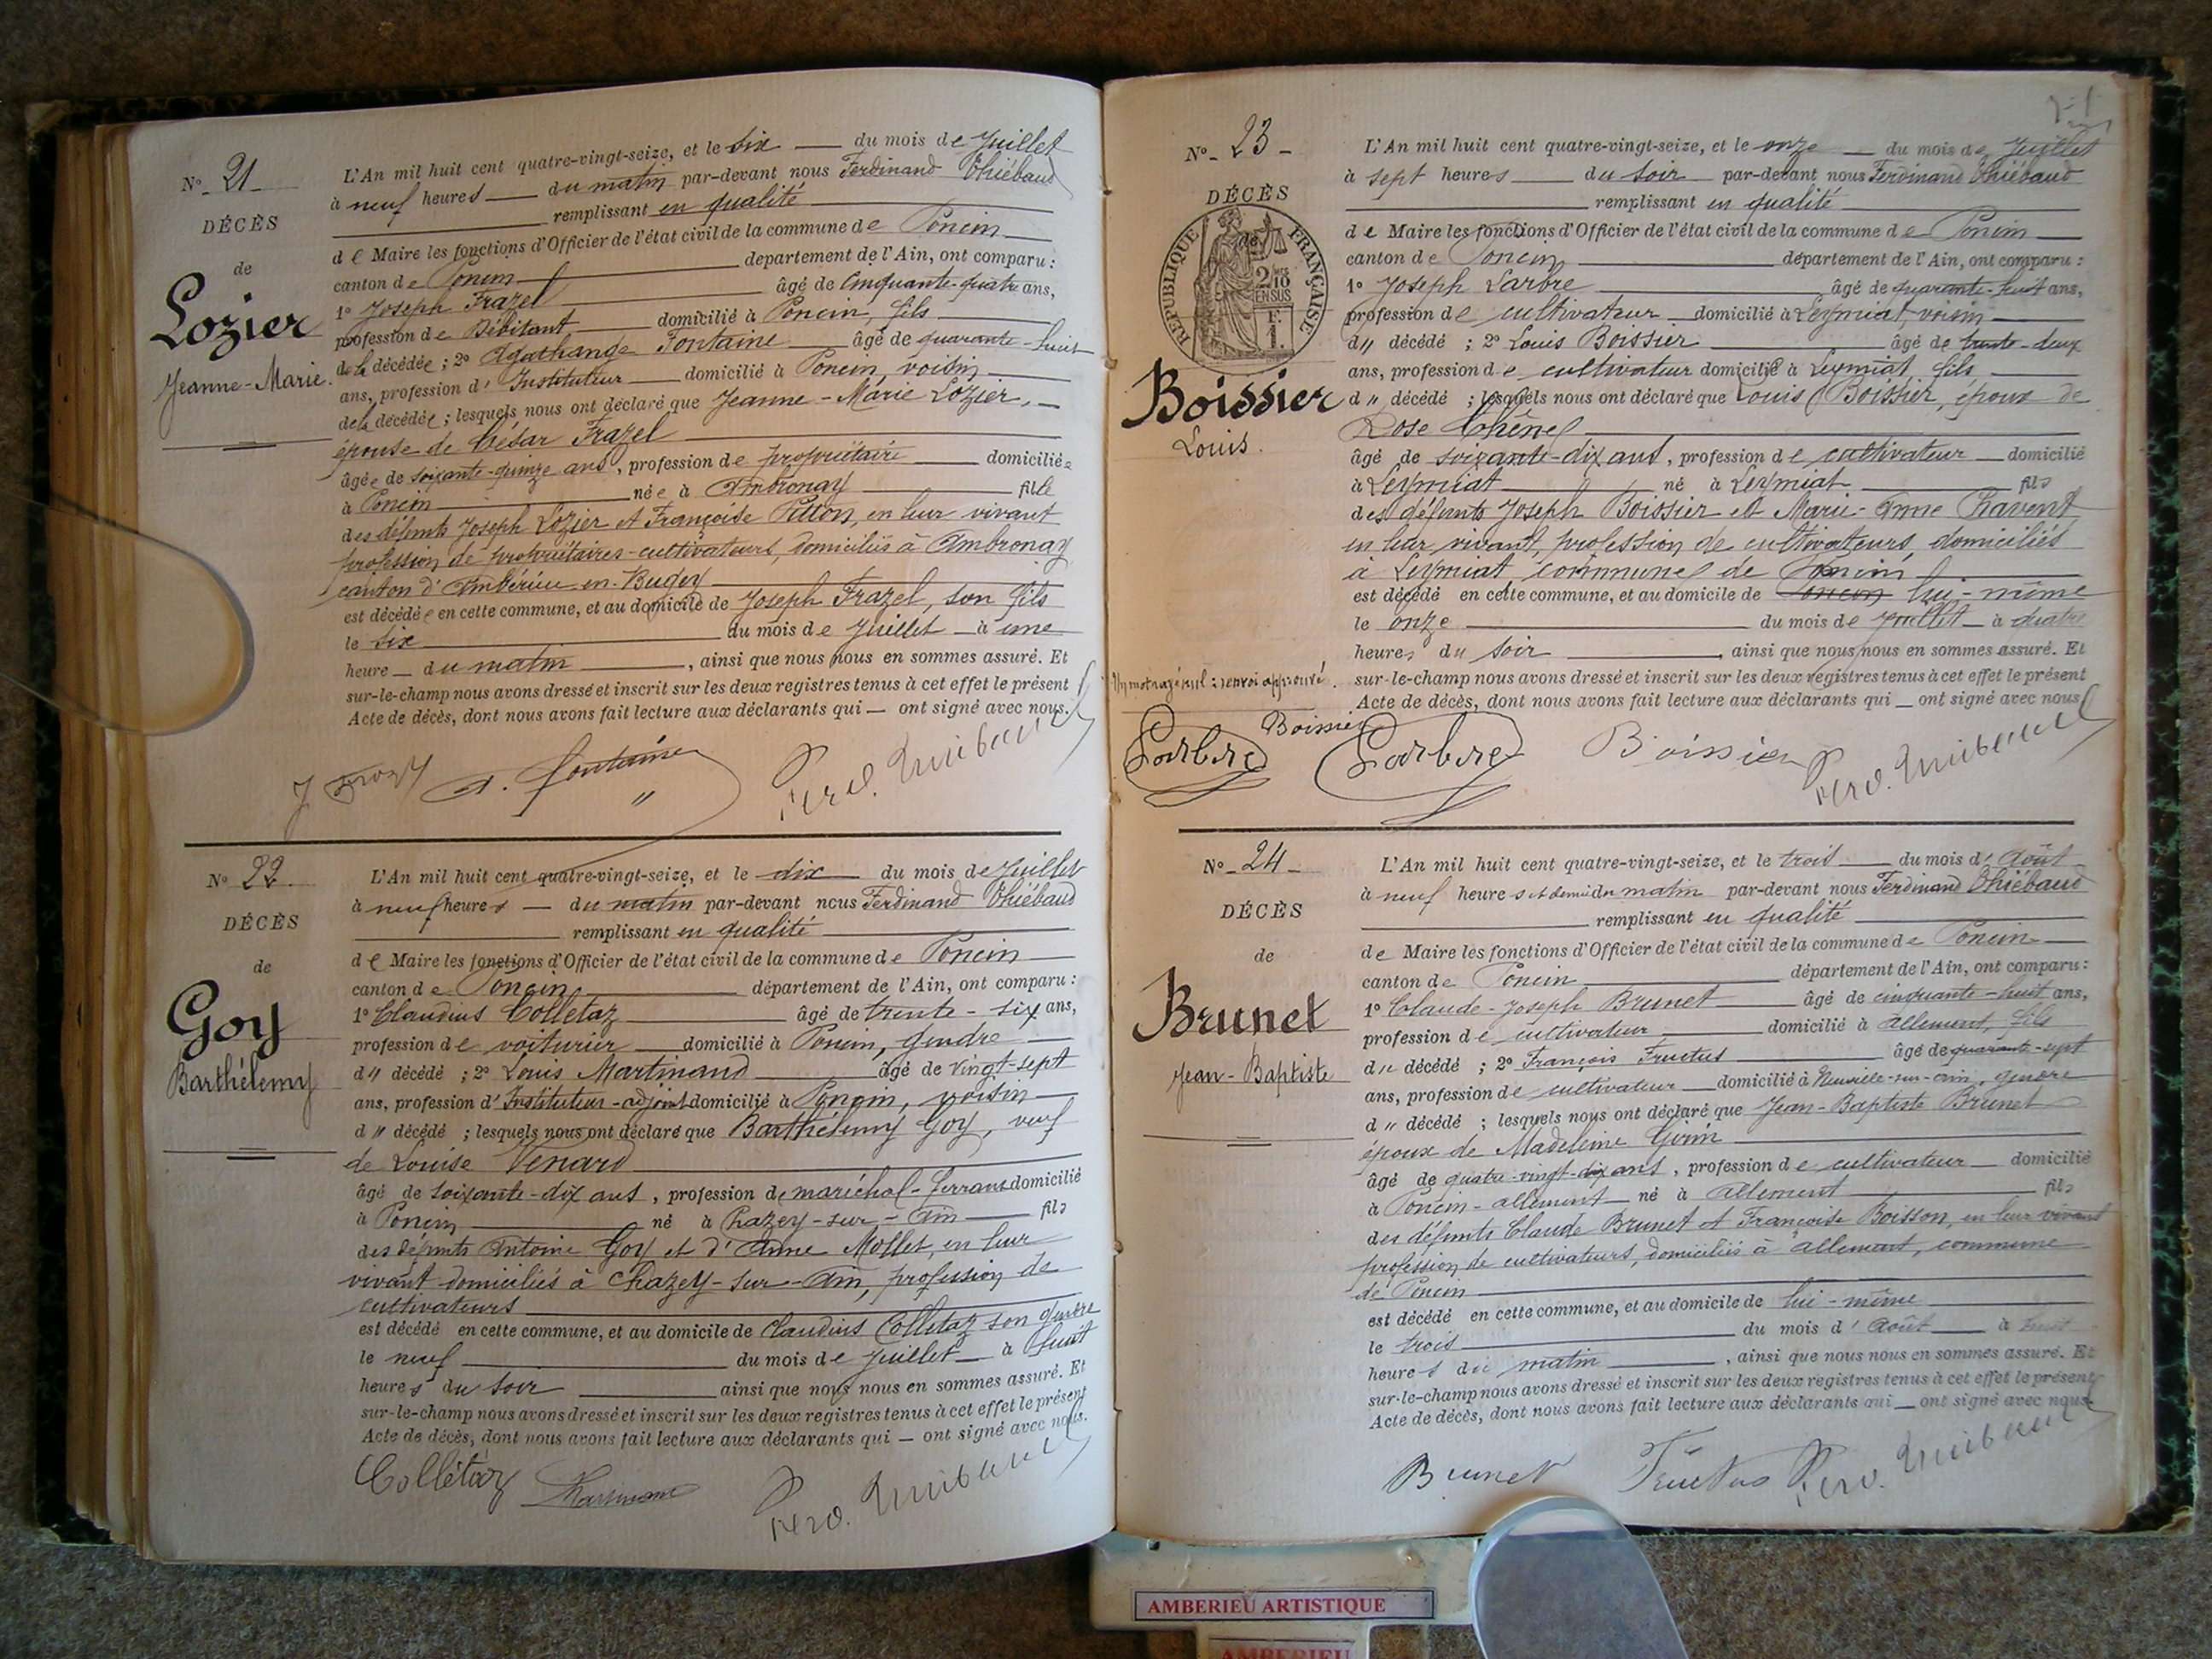 N° 21
DÉCÈS
de
Lozier
Jeanne-Marie.
L'An mil huit cent quatre-vingt-seize, et le six du mois de Juillet
à neuf heures du matin par-devant nous Ferdinand Thiébaud
remplissant en qualité
de Maire les fonctions d'Officier de l'état civil de la commune de Poncin
canton de Poncin département de l'Ain, ont comparu :
1° Joseph Frazel âgé de cinquante-quatre ans,
profession de Débitant domicilié à Poncin, fils
de la décédée ; 2° Agathange Fontaine âgé de quarante-huit
ans, profession d' Instituteur domicilié à Poncin, voisin
de la décédée ; lesquels nous ont déclaré que Jeanne-Marie Lozier,
épouse de César Frazel
âgée de soixante-quinze ans, profession de propriétaire domiciliée
à Poncin née à Ambronay fille
des défunts Joseph Lozier et Françoise Pition, en leur vivant
profession de propriétaires-cultivateurs, domiciliés à Ambronay
canton d'Ambérieu-en-Bugey
est décédée en cette commune, et au domicile de Joseph Frazel, son fils
le six du mois de Juillet à une
heure du matin, ainsi que nous nous en sommes assuré. Et
sur-le-champ nous avons dressé et inscrit sur les deux registres tenus à cet effet le présent
Acte de décès, dont nous avons fait lecture aux déclarants qui — ont signé avec nous.
A. Fontaine Ferd. Thiébaud
N° 22
DÉCÈS
de
Goy
Barthélemy
L'An mil huit cent quatre-vingt-seize, et le dix du mois de Juillet
à neuf heures — du matin par-devant nous Ferdinand Thiébaud
remplissant en qualité
de Maire les fonctions d'Officier de l'état civil de la commune de Poncin
canton de Poncin département de l'Ain, ont comparu :
1° Claudius Colletaz âgé de trente-six ans,
profession de voiturier domicilié à Poncin, gendre
d" décédé ; 2° Louis Martinand âgé de vingt-sept
ans, profession d' Instituteur-adjoint domicilié à Poncin, voisin
d" décédé ; lesquels nous ont déclaré que Barthélemy Goy, veuf
de Louise Venard
âgé de soixante-dix ans, profession de maréchal-ferrant domicilié
à Poncin né à Chazey-sur-Ain fils
des défunts Antoine Goy et d'Anne Mollet, en leur
vivant domiciliés à Chazey-sur-Ain, profession de
cultivateurs
est décédé en cette commune, et au domicile de Claudius Colletaz son gendre
le neuf du mois de Juillet à huit
heures du soir ainsi que nous nous en sommes assuré. Et
sur-le-champ nous avons dressé et inscrit sur les deux registres tenus à cet effet le présent
Acte de décès, dont nous avons fait lecture aux déclarants qui — ont signé avec nous.
Collétaz Martinand Ferd. Thiébaud
N° 23
DÉCÈS
de
RÉPUBLIQUE FRANÇAISE
2/10 EN SUS
F. 1.
Boissier
Louis.
L'An mil huit cent quatre-vingt-seize, et le onze du mois de Juillet
à sept heures du soir par-devant nous Ferdinand Thiébaud
remplissant en qualité
de Maire les fonctions d'Officier de l'état civil de la commune de Poncin
canton de Poncin département de l'Ain, ont comparu :
1° Joseph Larbre âgé de quarante-huit ans,
profession de cultivateur domicilié à Leymiat, voisin
d" décédé ; 2° Louis Boissier âgé de trente-deux
ans, profession de cultivateur domicilié à Leymiat, fils
d" décédé ; lesquels nous ont déclaré que Louis Boissier, époux de
Rose Chênel
âgé de soixante-dix ans, profession de cultivateur domicilié
à Leymiat né à Leymiat fils
des défunts Joseph Boissier et Marie-Anne Chavent
en leur vivant, profession de cultivateurs, domiciliés
à Leymiat, commune de Poncin
est décédé en cette commune, et au domicile de Poncin lui-même
le onze du mois de Juillet à quatre
heures du soir, ainsi que nous nous en sommes assuré. Et
sur-le-champ nous avons dressé et inscrit sur les deux registres tenus à cet effet le présent
Acte de décès, dont nous avons fait lecture aux déclarants qui — ont signé avec nous
Un mot rayé nul : renvoi approuvé.
Boissier
Larbre Larbre Boissier Ferd. Thiébaud
N° 24
DÉCÈS
de
Brunet
Jean-Baptiste
L'An mil huit cent quatre-vingt-seize, et le trois du mois d'Août
à neuf heures et demie du matin par-devant nous Ferdinand Thiébaud
remplissant en qualité
de Maire les fonctions d'Officier de l'état civil de la commune de Poncin
canton de Poncin département de l'Ain, ont comparu :
1° Claude-Joseph Brunet âgé de cinquante-huit ans,
profession de cultivateur domicilié à Allement, fils
du décédé ; 2° François Fructus âgé de quarante-sept
ans, profession de cultivateur domicilié à Neuville-sur-Ain, gendre
d" décédé ; lesquels nous ont déclaré que Jean-Baptiste Brunet
époux de Madeleine Goirin
âgé de quatre-vingt-dix ans, profession de cultivateur domicilié
à Poncin-Allement né à Allement fils
des défunts Claude Brunet et Françoise Boisson, en leur vivant
profession de cultivateurs, domiciliés à Allement, commune
de Poncin
est décédé en cette commune, et au domicile de lui-même
le trois du mois d'Août à
heures du matin, ainsi que nous nous en sommes assuré. Et
sur-le-champ nous avons dressé et inscrit sur les deux registres tenus à cet effet le présent
Acte de décès, dont nous avons fait lecture aux déclarants qui — ont signé avec nous
Brunet Fructus Ferd. Thiébaud
AMBERIEU ARTISTIQUE
AMBERIEU